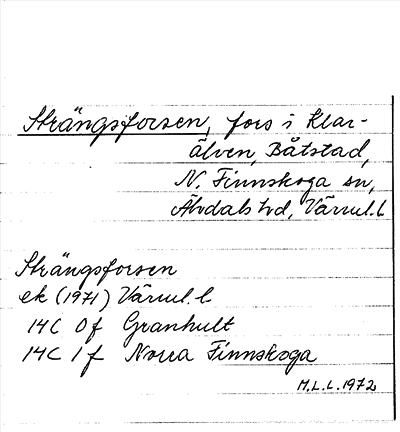 Strängsforsen, fors i Klar-
älven, Båtstad,
N. Finnskoga sn,
Älvdals hd, Värml. l
Strängsforsen
ek (1971) Värml. l
14C 0f Granhult
14C 1f Norra Finnskoga
M.L.L. 1972